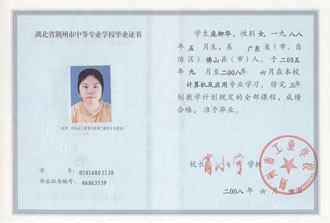 湖北省荆州市中等专业学校毕业证书
学号: 05016003130
毕业证书编号: 06063559
学生 庞柳华，性别 女，一九八八
年 五 月生，系 广东 省（市、自
治区）佛山 县（市）人。于 二00五
年 九 月至 二00八 年 六 月在本校
计算机及应用 专业学习，修完 三 年
制教学计划规定的全部课程，成绩
合格，准予毕业。
校长 肖小宁 学校
二00八 年 六 月 日